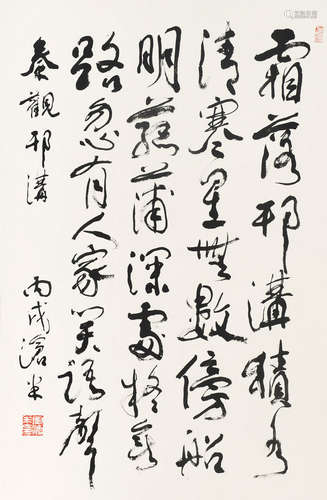 霜落邗溝積水
清寒星無數傍船
明菰蒲深處疑無
路忽有人家笑語聲
秦觀邗溝
丙戌滄米